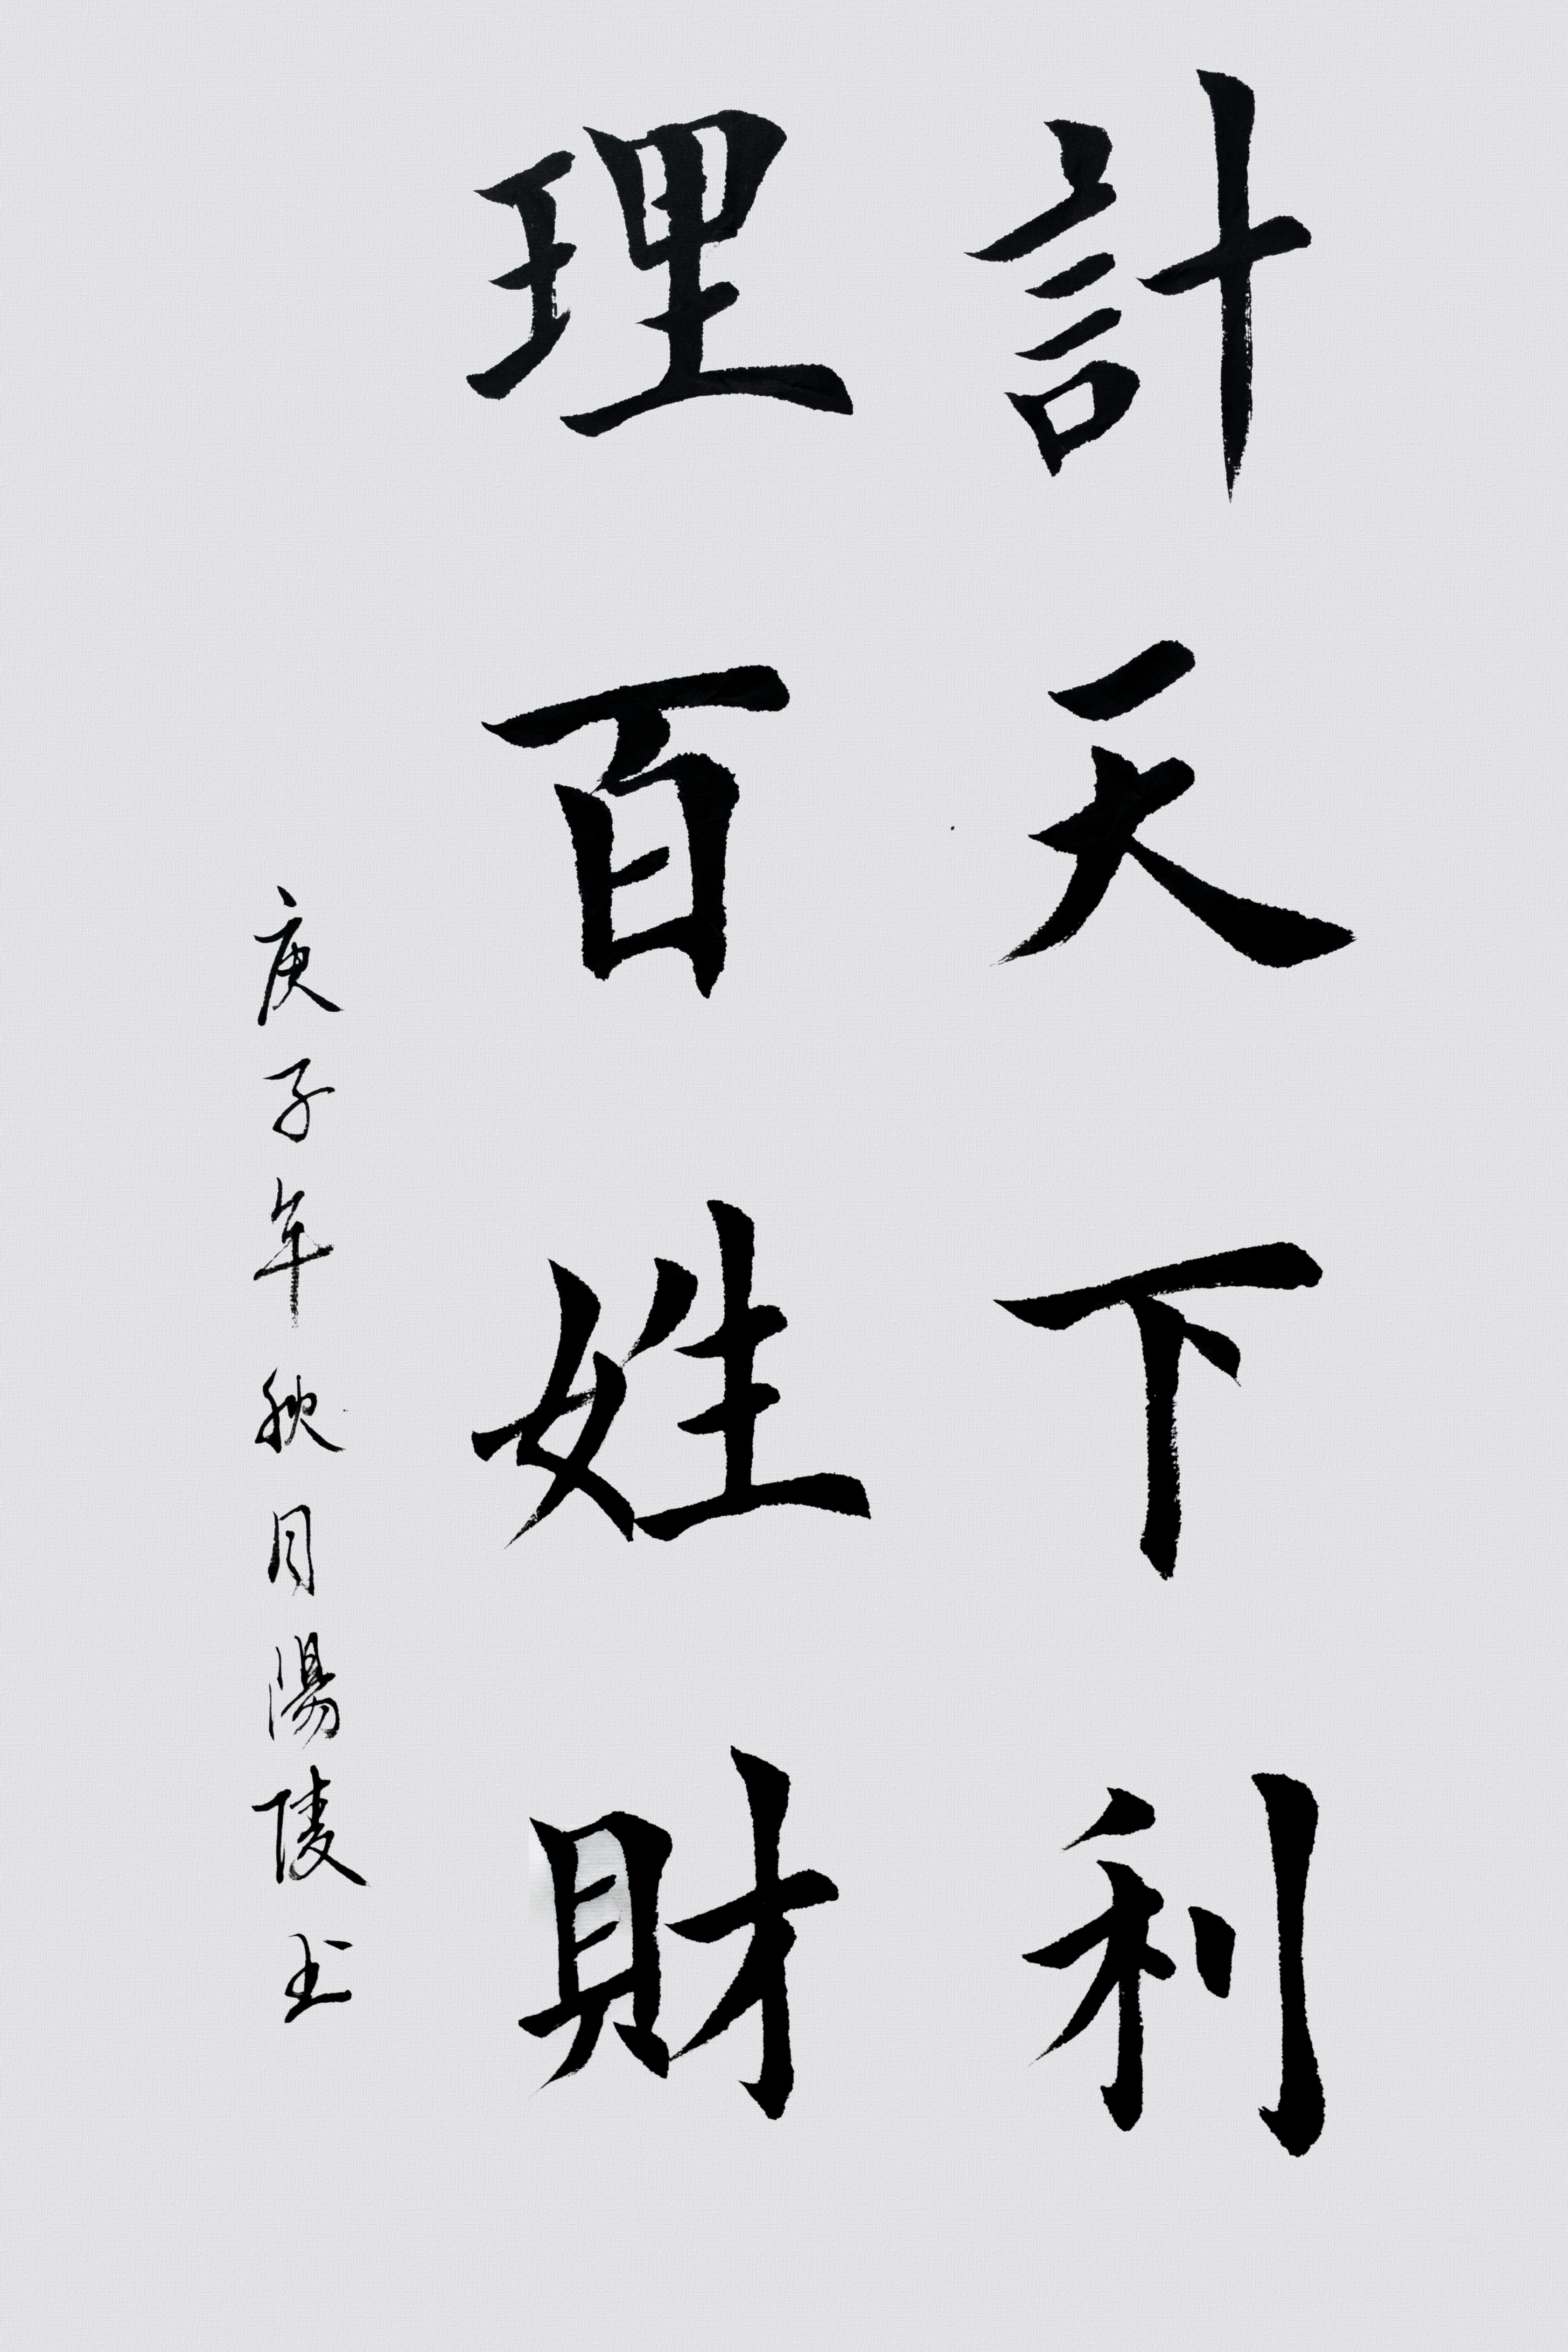 計天下利
理百姓財
庚子年秋月陽陵书